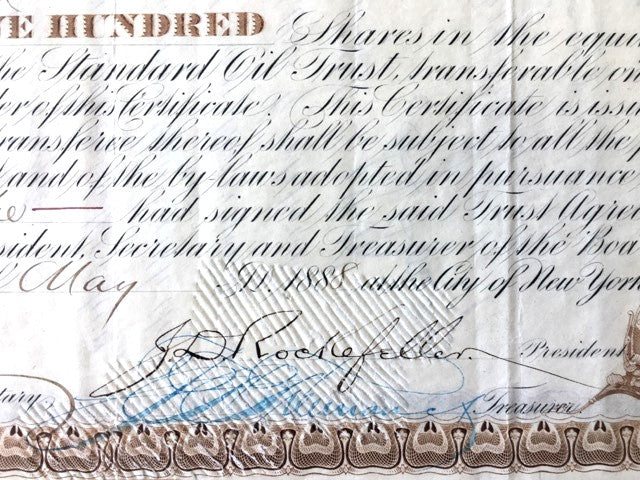 NE HUNDRED Shares in the equi
he Standard Oil Trust, transferable on
der of this Certificate. This Certificate is issu
transferee thereof shall be subject to all the p
and of the by-laws adopted in pursuance
had signed the said Trust Agree
sident, Secretary and Treasurer of the Boa
May A.D. 1888 at the City of New York
J D Rockefeller. President
tary. Treasurer